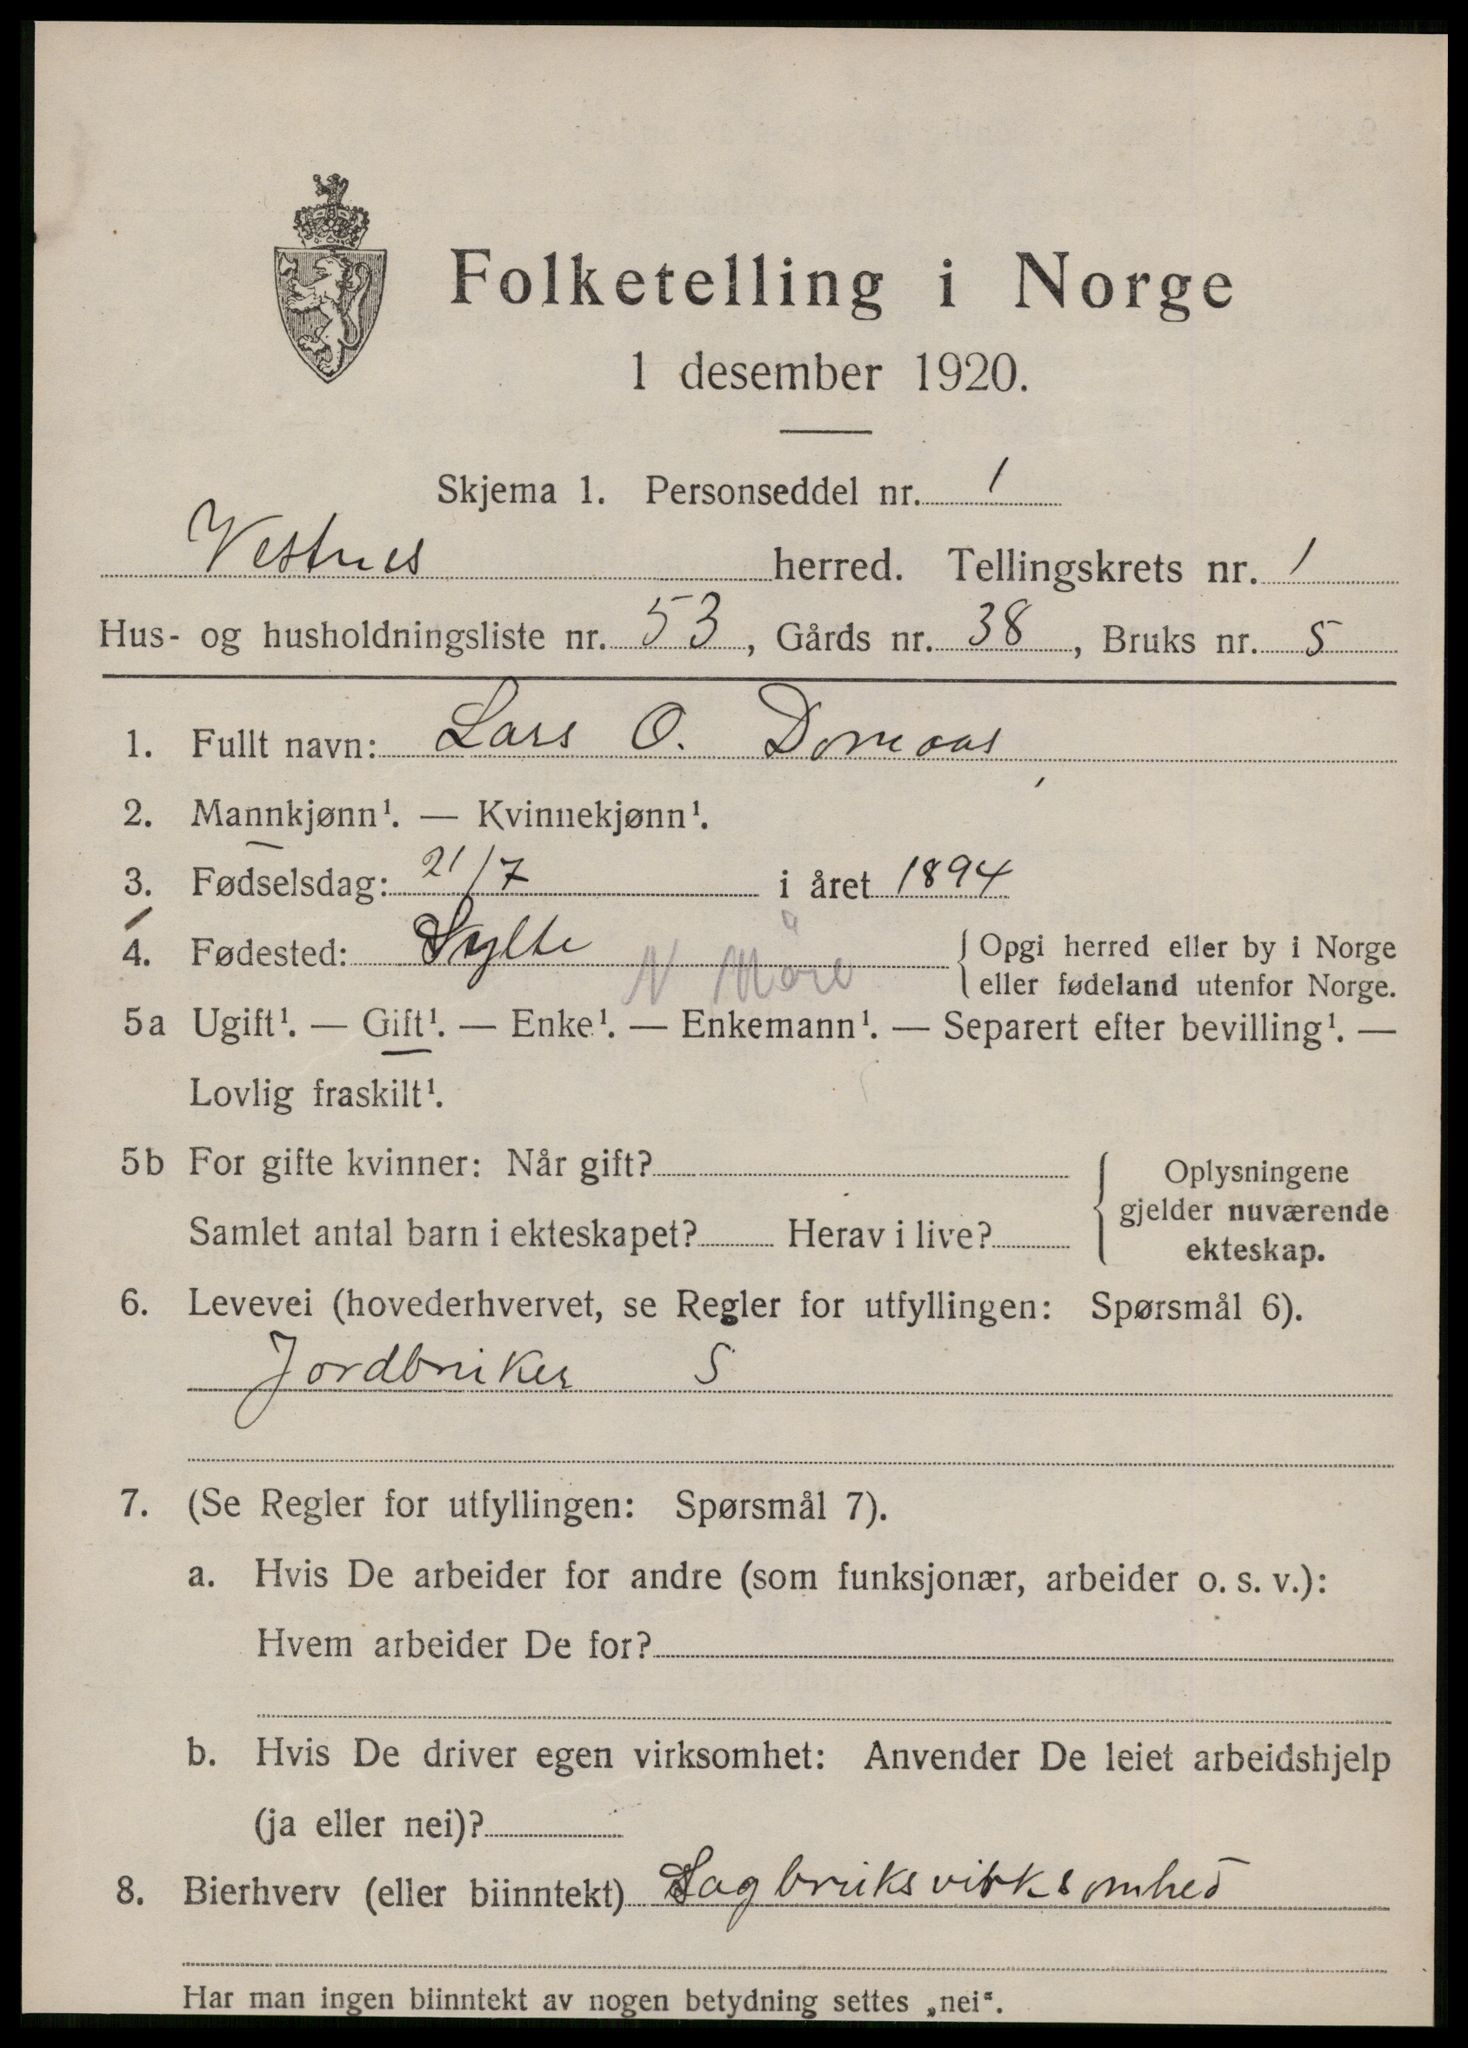 Folketelling i Norge
1 desember 1920.
Skjema 1. Personseddel nr. 1
Vestnes herred. Tellingskrets nr. 1
Hus- og husholdningsliste nr. 53, Gårds nr. 38, Bruks nr. 5
1. Fullt navn: Lars O. Domaas
2. Mannkjønn¹. — Kvinnekjønn¹.
3. Fødselsdag: 21/7 i året 1894
4. Fødested: Sylte { Opgi herred eller by i Norge
N Möre eller fødeland utenfor Norge.
5a Ugift¹. — Gift¹. — Enke¹. — Enkemann¹. — Separert efter bevilling¹. —
Lovlig fraskilt¹.
5b For gifte kvinner: Når gift? { Oplysningene
gjelder nuværende
Samlet antal barn i ekteskapet? Herav i live? ekteskap.
6. Levevei (hovederhvervet, se Regler for utfyllingen: Spørsmål 6).
Jordbruker S
7. (Se Regler for utfyllingen: Spørsmål 7).
a. Hvis De arbeider for andre (som funksjonær, arbeider o. s. v.):
Hvem arbeider De for?
b. Hvis De driver egen virksomhet: Anvender De leiet arbeidshjelp
(ja eller nei)?
8. Bierhverv (eller biinntekt) Sagbruksvirksomhed
Har man ingen biinntekt av nogen betydning settes „nei“.